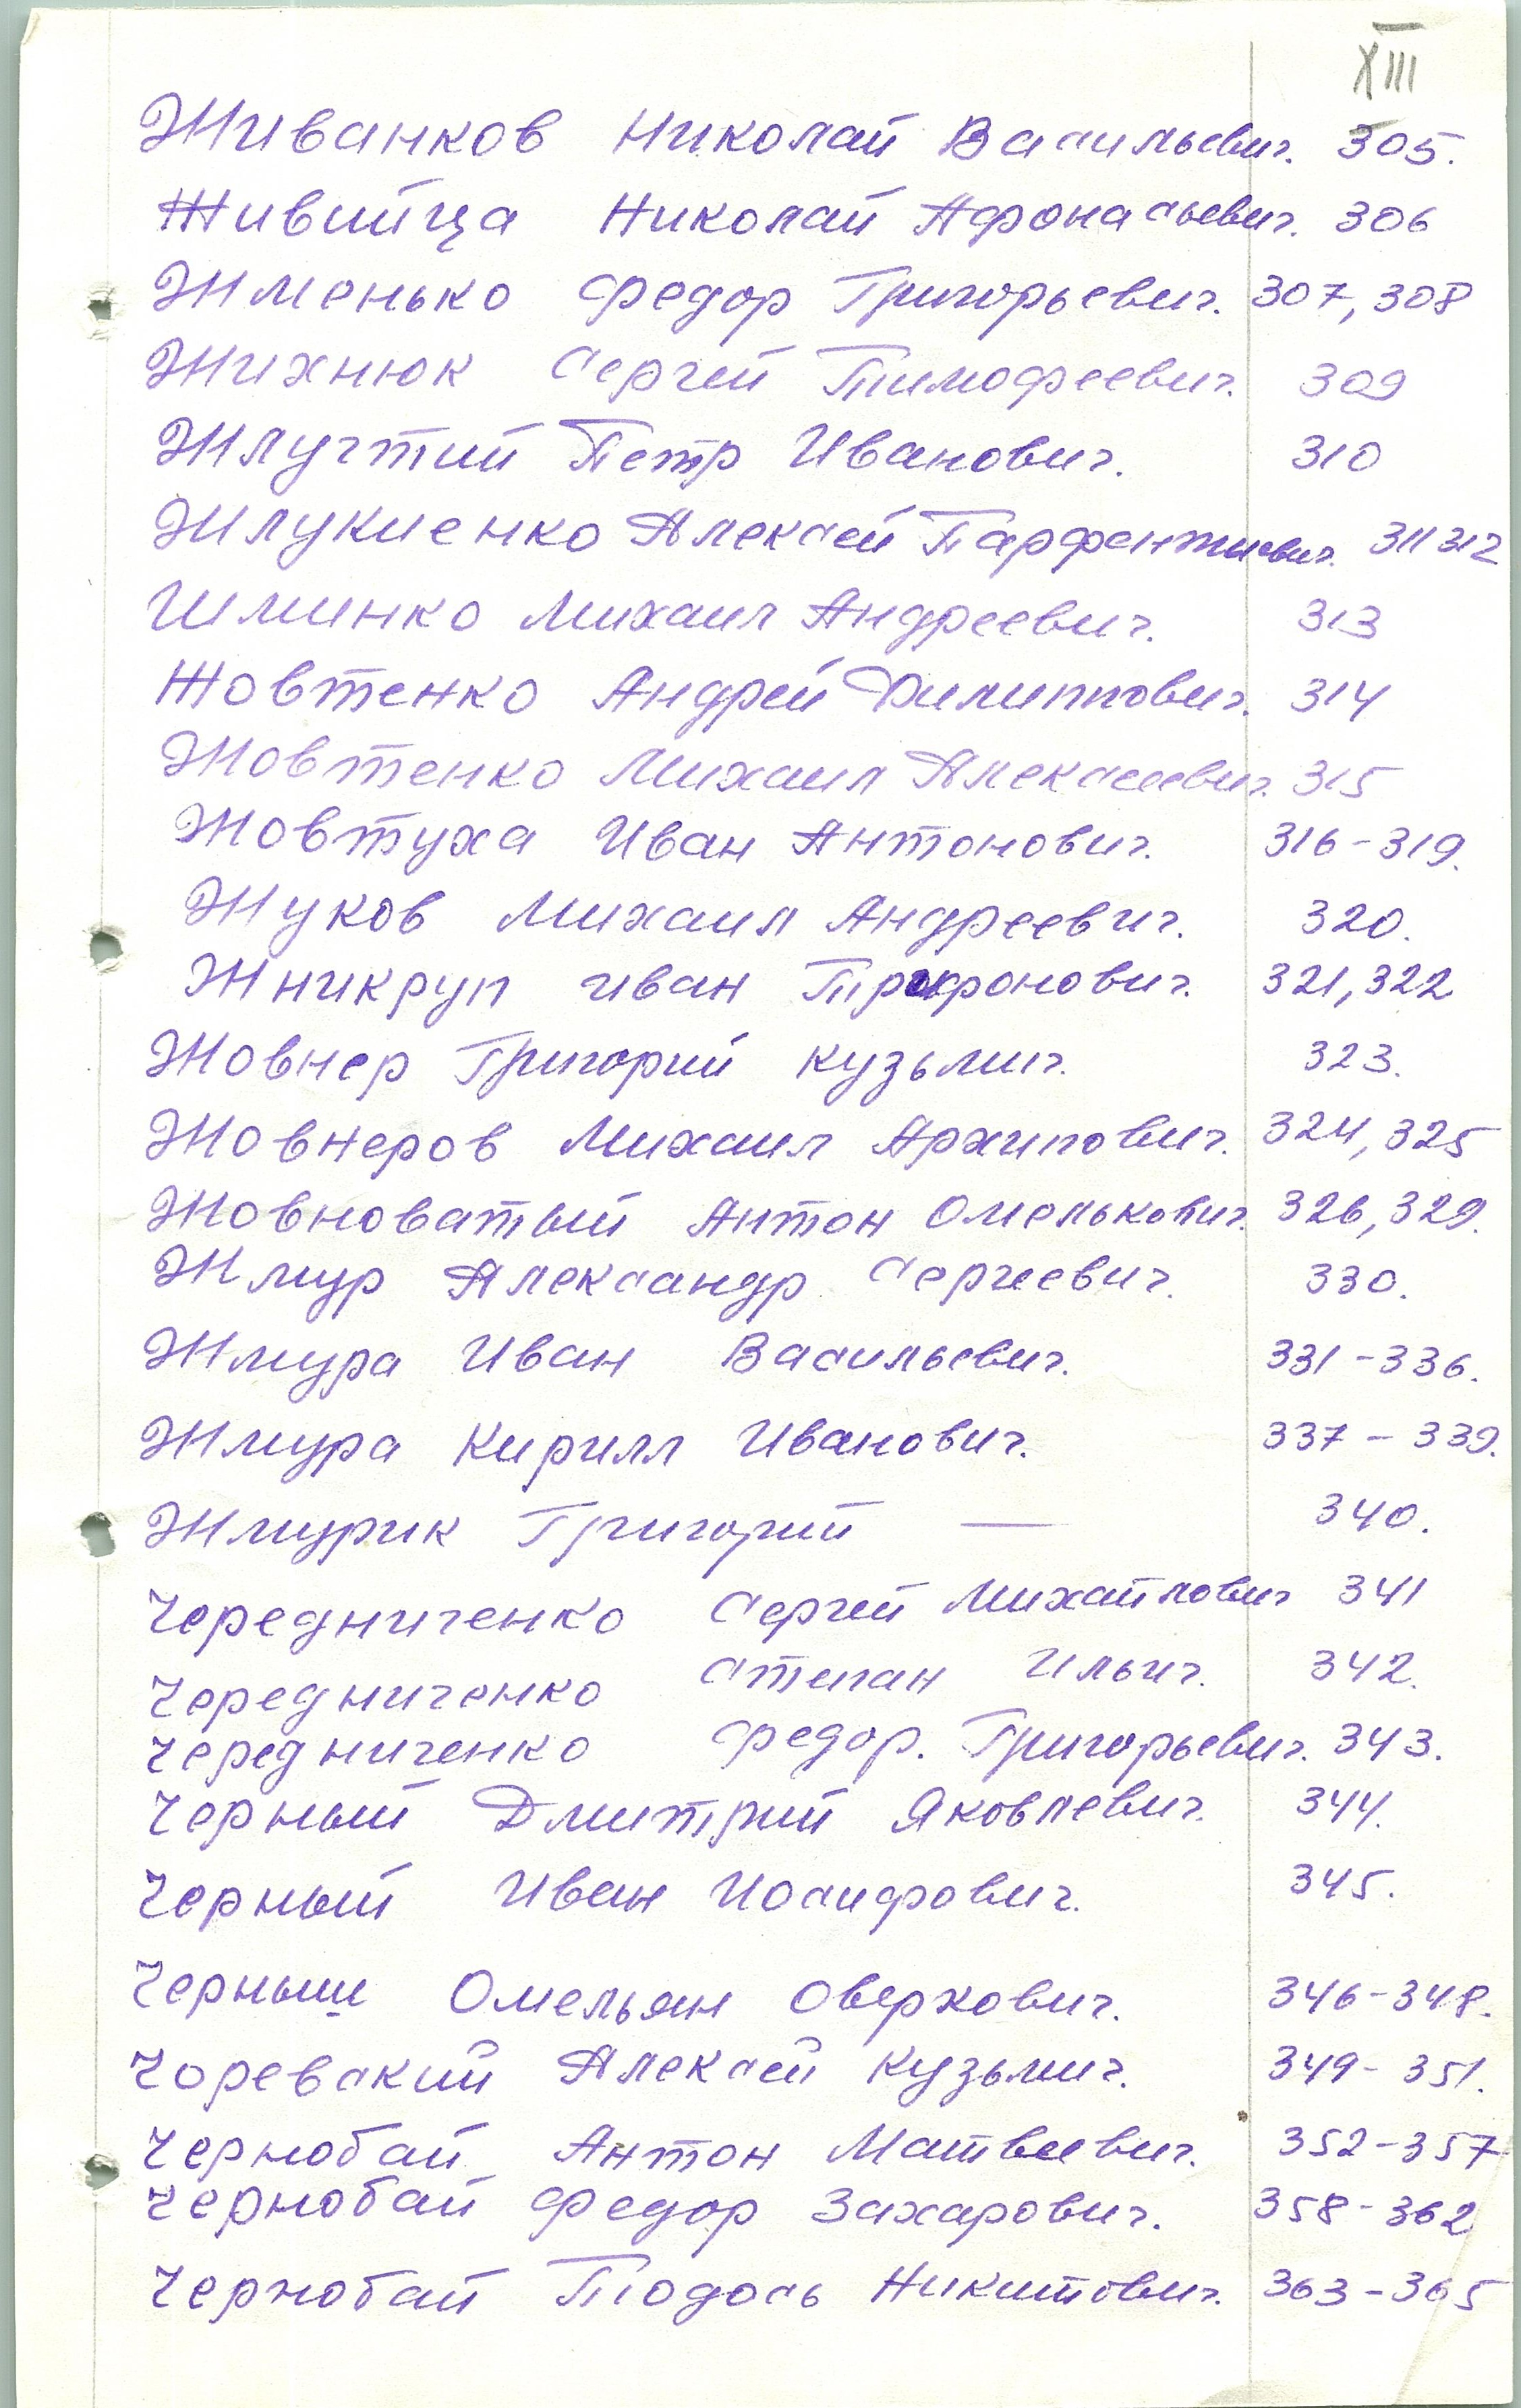 XIII
Живанков Николай Васильевич. 305.
Живийца Николай Афонасьевич. 306
Жменько Федор Григорьевич. 307, 308
Жихнюк Сергей Тимофеевич. 309
Жлуттий Петр Иванович. 310
Жлукиенко Алексей Парфентиевич. 311 312
Шминко Михаил Андреевич. 313
Жовтенко Андрей Филиппович. 314
Жовтенко Михаил Алексеевич. 315
Жовтуха Иван Антонович. 316-319.
Жуков Михаил Андреевич. 320.
Жникруп Иван Трифонович. 321, 322
Жовнер Григорий Кузьмич. 323.
Жовнеров Михаил Архипович. 324, 325
Жовноватый Антон Омелькович. 326, 329.
Жмур Александр Сергеевич. 330.
Жмура Иван Васильевич. 331-336.
Жмура Кирилл Иванович. 337-339.
Жмурик Григорий — 340.
Чередниченко Сергей Михайлович 341
Чередниченко Степан Ильич. 342.
Чередниченко Федор. Григорьевич. 343.
Черный Дмитрий Яковлевич. 344.
Черный Иван Иосифович. 345.
Черныш Омельян Оверкович. 346-348.
Чоревский Алексей Кузьмич. 349-351.
Чернобай Антон Матвеевич. 352-357
Чернобай Федор Захарович. 358-362
Чернобай Тодось Никитович. 363-365